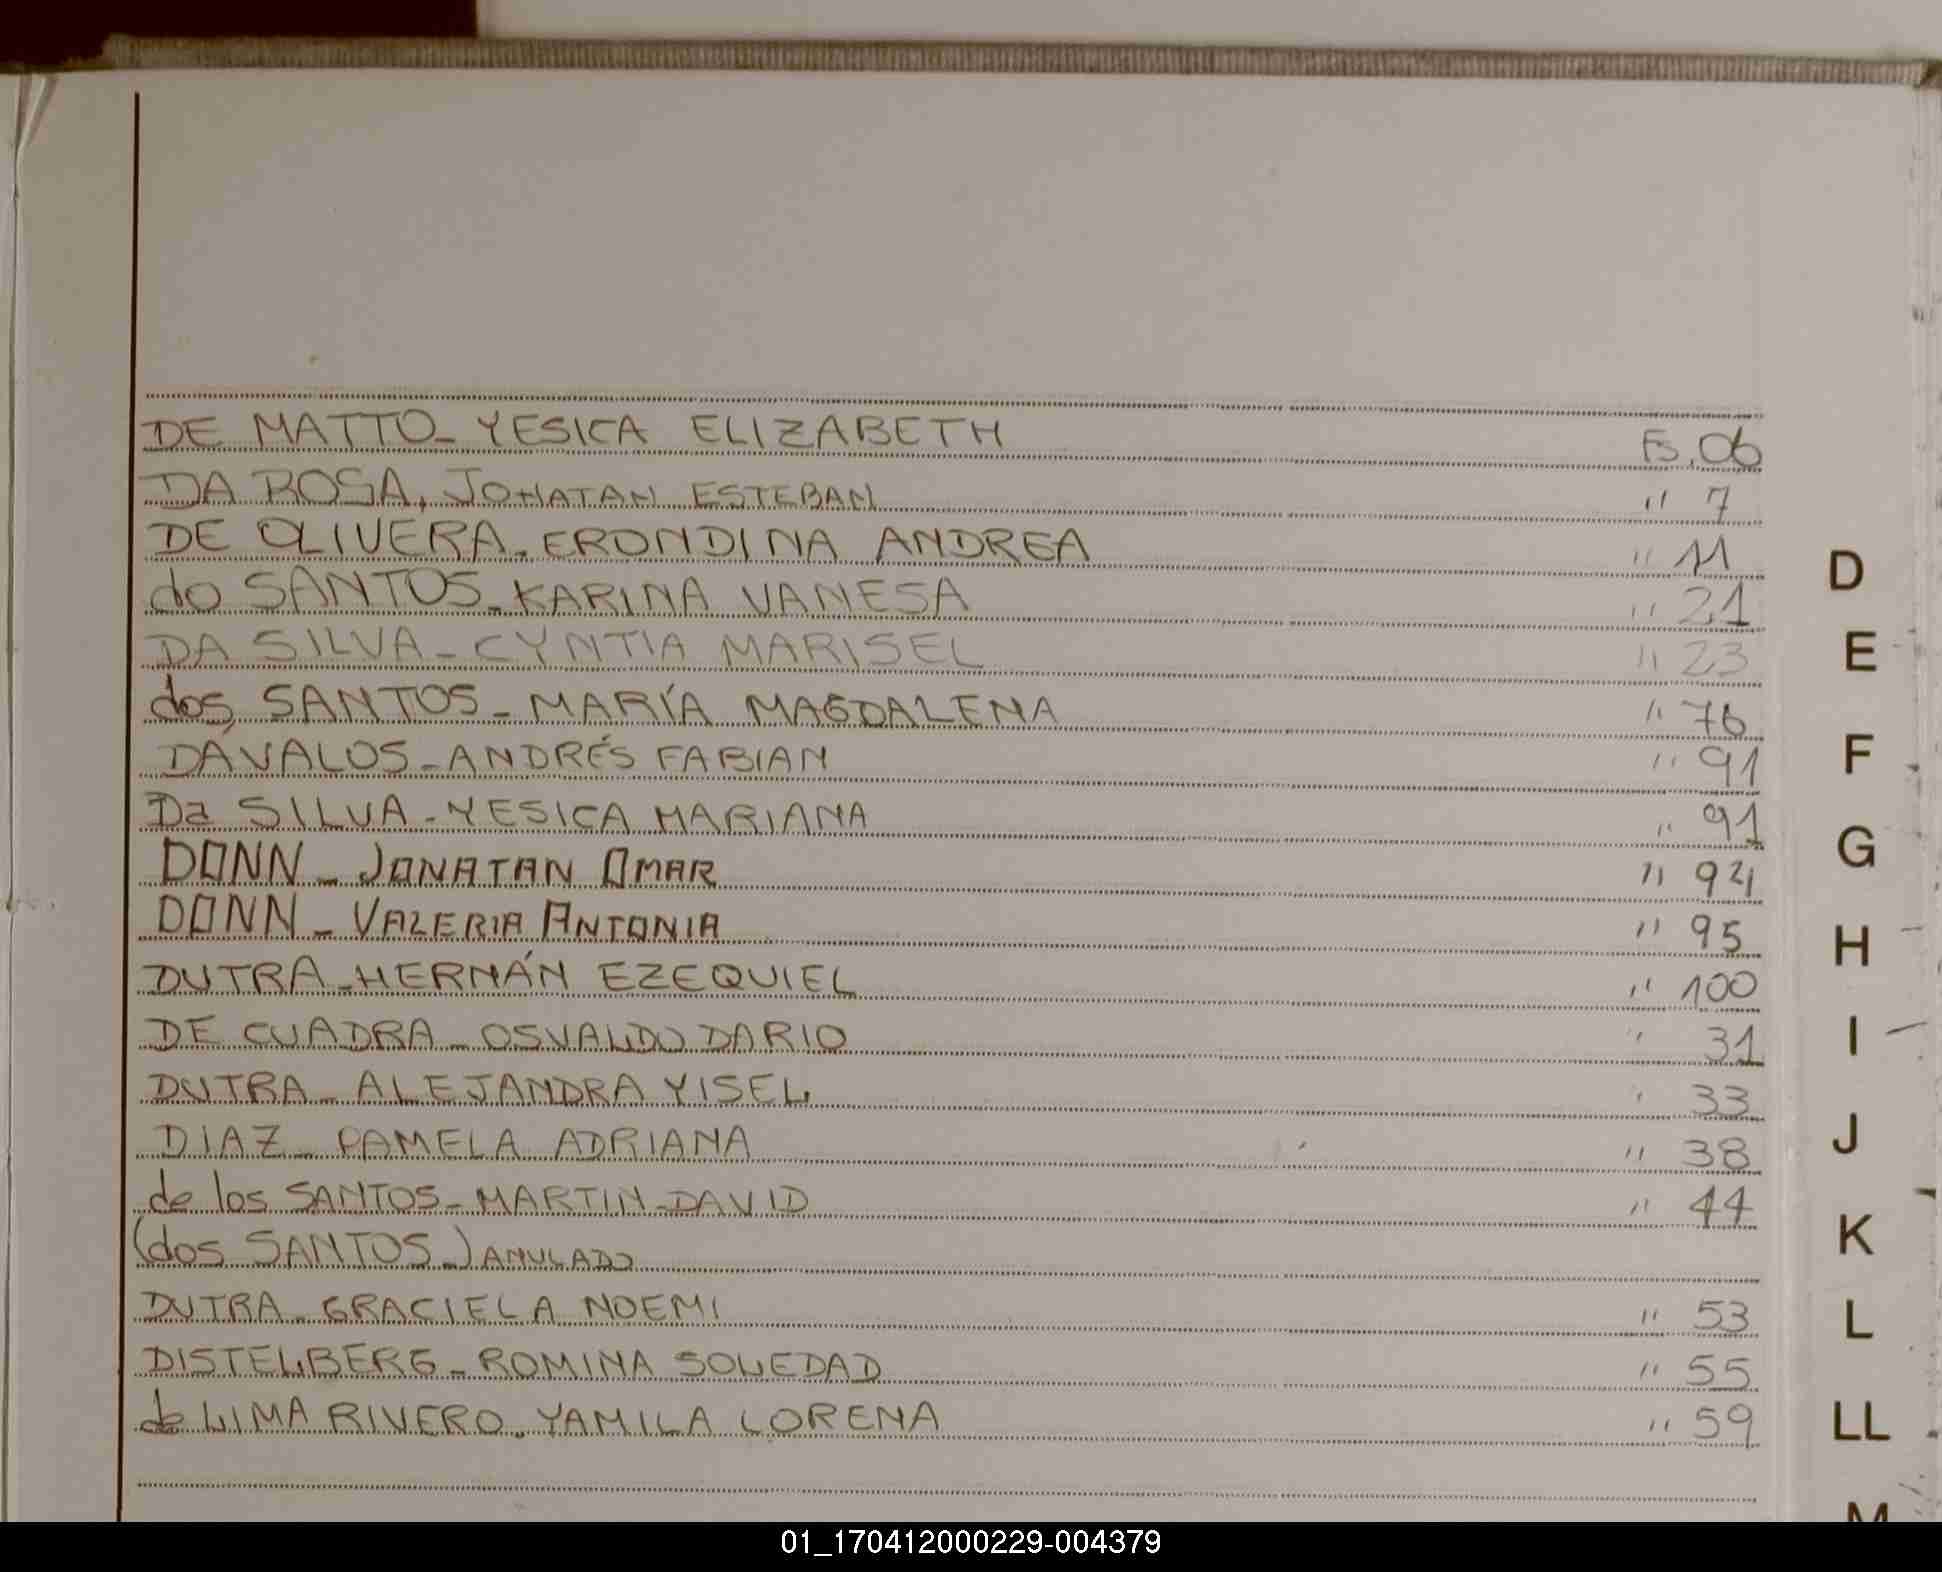 DE MATTO_ YESICA ELIZABETH Fs. 06
DA ROSA, JOHATAN ESTEBAN " 7
DE OLIVERA_ ERONDINA ANDREA " 11
do SANTOS_ KARINA VANESA " 21
DA SILVA_ CYNTIA MARISEL " 23
dos SANTOS_ MARÍA MAGDALENA " 76
DÁVALOS_ ANDRÉS FABIAN " 91
Da SILVA_ YESICA MARIANA " 91
DONN_ JONATAN OMAR " 94
DONN_ VALERIA ANTONIA " 95
DUTRA_ HERNÁN EZEQUIEL " 100
DE CUADRA_ OSVALDO DARIO " 31
DUTRA_ ALEJANDRA YISEL " 33
DIAZ_ PAMELA ADRIANA " 38
de los SANTOS_ MARTIN DAVID " 44
(dos SANTOS_) ANULADO
DUTRA_ GRACIELA NOEMI " 53
DISTELBERG_ ROMINA SOLEDAD " 55
de LIMA RIVERO_ YAMILA LORENA " 59
D
E
F
G
H
I
J
K
L
LL
M
01_170412000229-004379